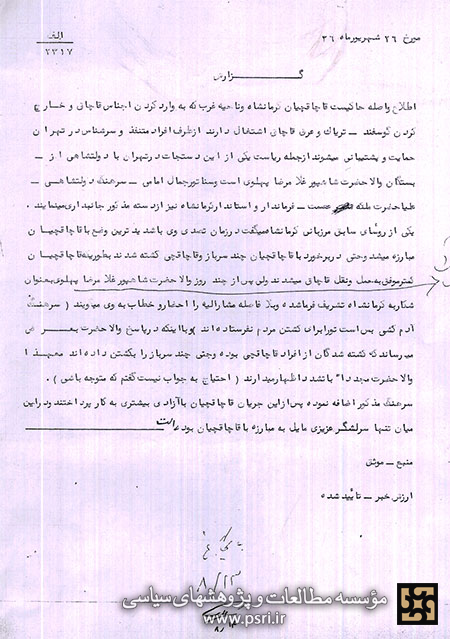 مورخ ۲۶ شهریورماه ۳۶
الف
۲۳۱۷
گزارش
اطلاع واصله حاکیست قاچاقچیان کرمانشاه و ناحیه غرب که به وارد کردن اجناس قاچاق و خارج
کردن گوسفند ـ تریاک و عرق قاچاق اشتغال دارند از طرف افراد متنفذ و سرشناس در تهران
حمایت و پشتیبانی میشوند از جمله ریاست یکی از این دستجات در تهران با دولتشاهی از ـ
بستگان والاحضرت شاهپور غلامرضا پهلوی است و سناتور جمال امامی ـ سرهنگ دولتشاهی ـ
علیاحضرت ملکه عصمت ـ فرماندار و استاندار کرمانشاه نیز از دسته مذکور جانبداری مینمایند .
یکی از روسای سابق مرزبانی کرمانشاه میگفت در زمان تصدی وی با شدیدترین وضع با قاچاقچیان
مبارزه میشد و حتی در برخورد با قاچاقچیان چند سرباز و قاچاقچی کشته شدند بطوریکه قاچاقچیان
کمتر موفق به حمل و نقل قاچاق میشدند ولی پس از چند روز والاحضرت شاهپور غلامرضا پهلوی بعنوان
شکار به کرمانشاه تشریف فرما شده و بلافاصله مشارالیه را احضار و خطاب به وی میگویند ( سرهنگ
آدم کشی بس است ترا برای کشتن مردم نفرستاده اند ) و با اینکه در پاسخ والاحضرت بعرض می
میرساند که کشته شدگان از افراد قاچاقچی بوده و حتی چند سرباز را بکشتن داده اند معهذا
والاحضرت مجدداً با تشدد اظهار میدارند ( احتیاج به جواب نیست گفتم که متوجه باشی ) .
سرهنگ مذکور اضافه نموده پس از این جریان قاچاقچیان با آزادی بیشتری به کار پرداختند و در این
میان تنها سرلشگر عزیزی مایل به مبارزه با قاچاقچیان بوده است
منبع ـ موثق
ارزش خبر ـ تأیید شده
۸/۲۳
مؤسسه مطالعات و پژوهشهای سیاسی
www.psri.ir